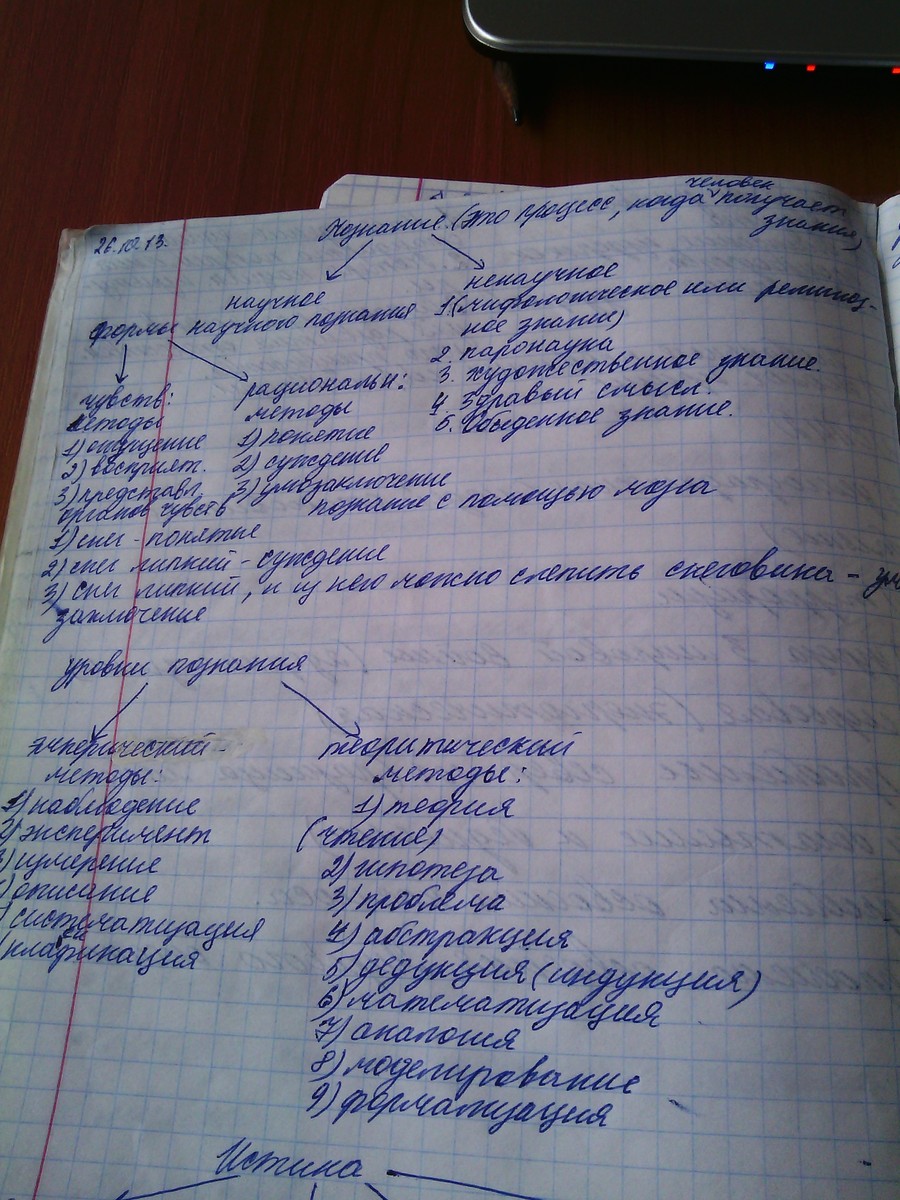 26.10.13.
Познание. (это процесс, когда человек получает
знания)
научное
ненаучное
формы научного познания
1. (мифологическое или религиоз-
ное знание)
2. паронаука
3. художественное знание.
4. Здравый смысл.
5. Обыденное знание.
чувств:
методы
1) ощущение
2) восприят.
3) представл.
органов чувств
рациональн:
методы
1) понятие
2) суждение
3) умозаключение
познание с помощью мозга
1) снег - понятие
2) снег липкий - суждение
3) снег липкий, и из него можно слепить снеговика - умо
заключение
уровни познания
эмперический -
методы:
1) наблюдение
2) эксперимент
3) измерение
) описание
) систематизация
) классификация
теоритический
методы:
1) теория
(чтение)
2) гипотеза
3) проблема
4) абстракция
5) дедукция (индукция)
6) математизация
7) аналогия
8) моделирование
9) форматизация
Истина